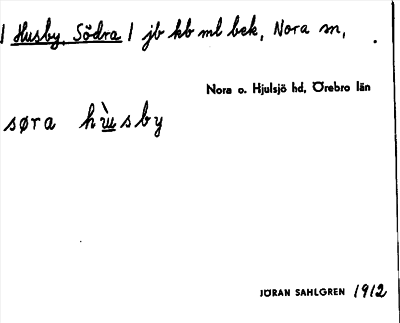 | Husby, Södra | jb kb ml bek, Nora sn,
Nora o. Hjulsjö hd, Örebro län
søra hùsby
JÖRAN SAHLGREN 1912